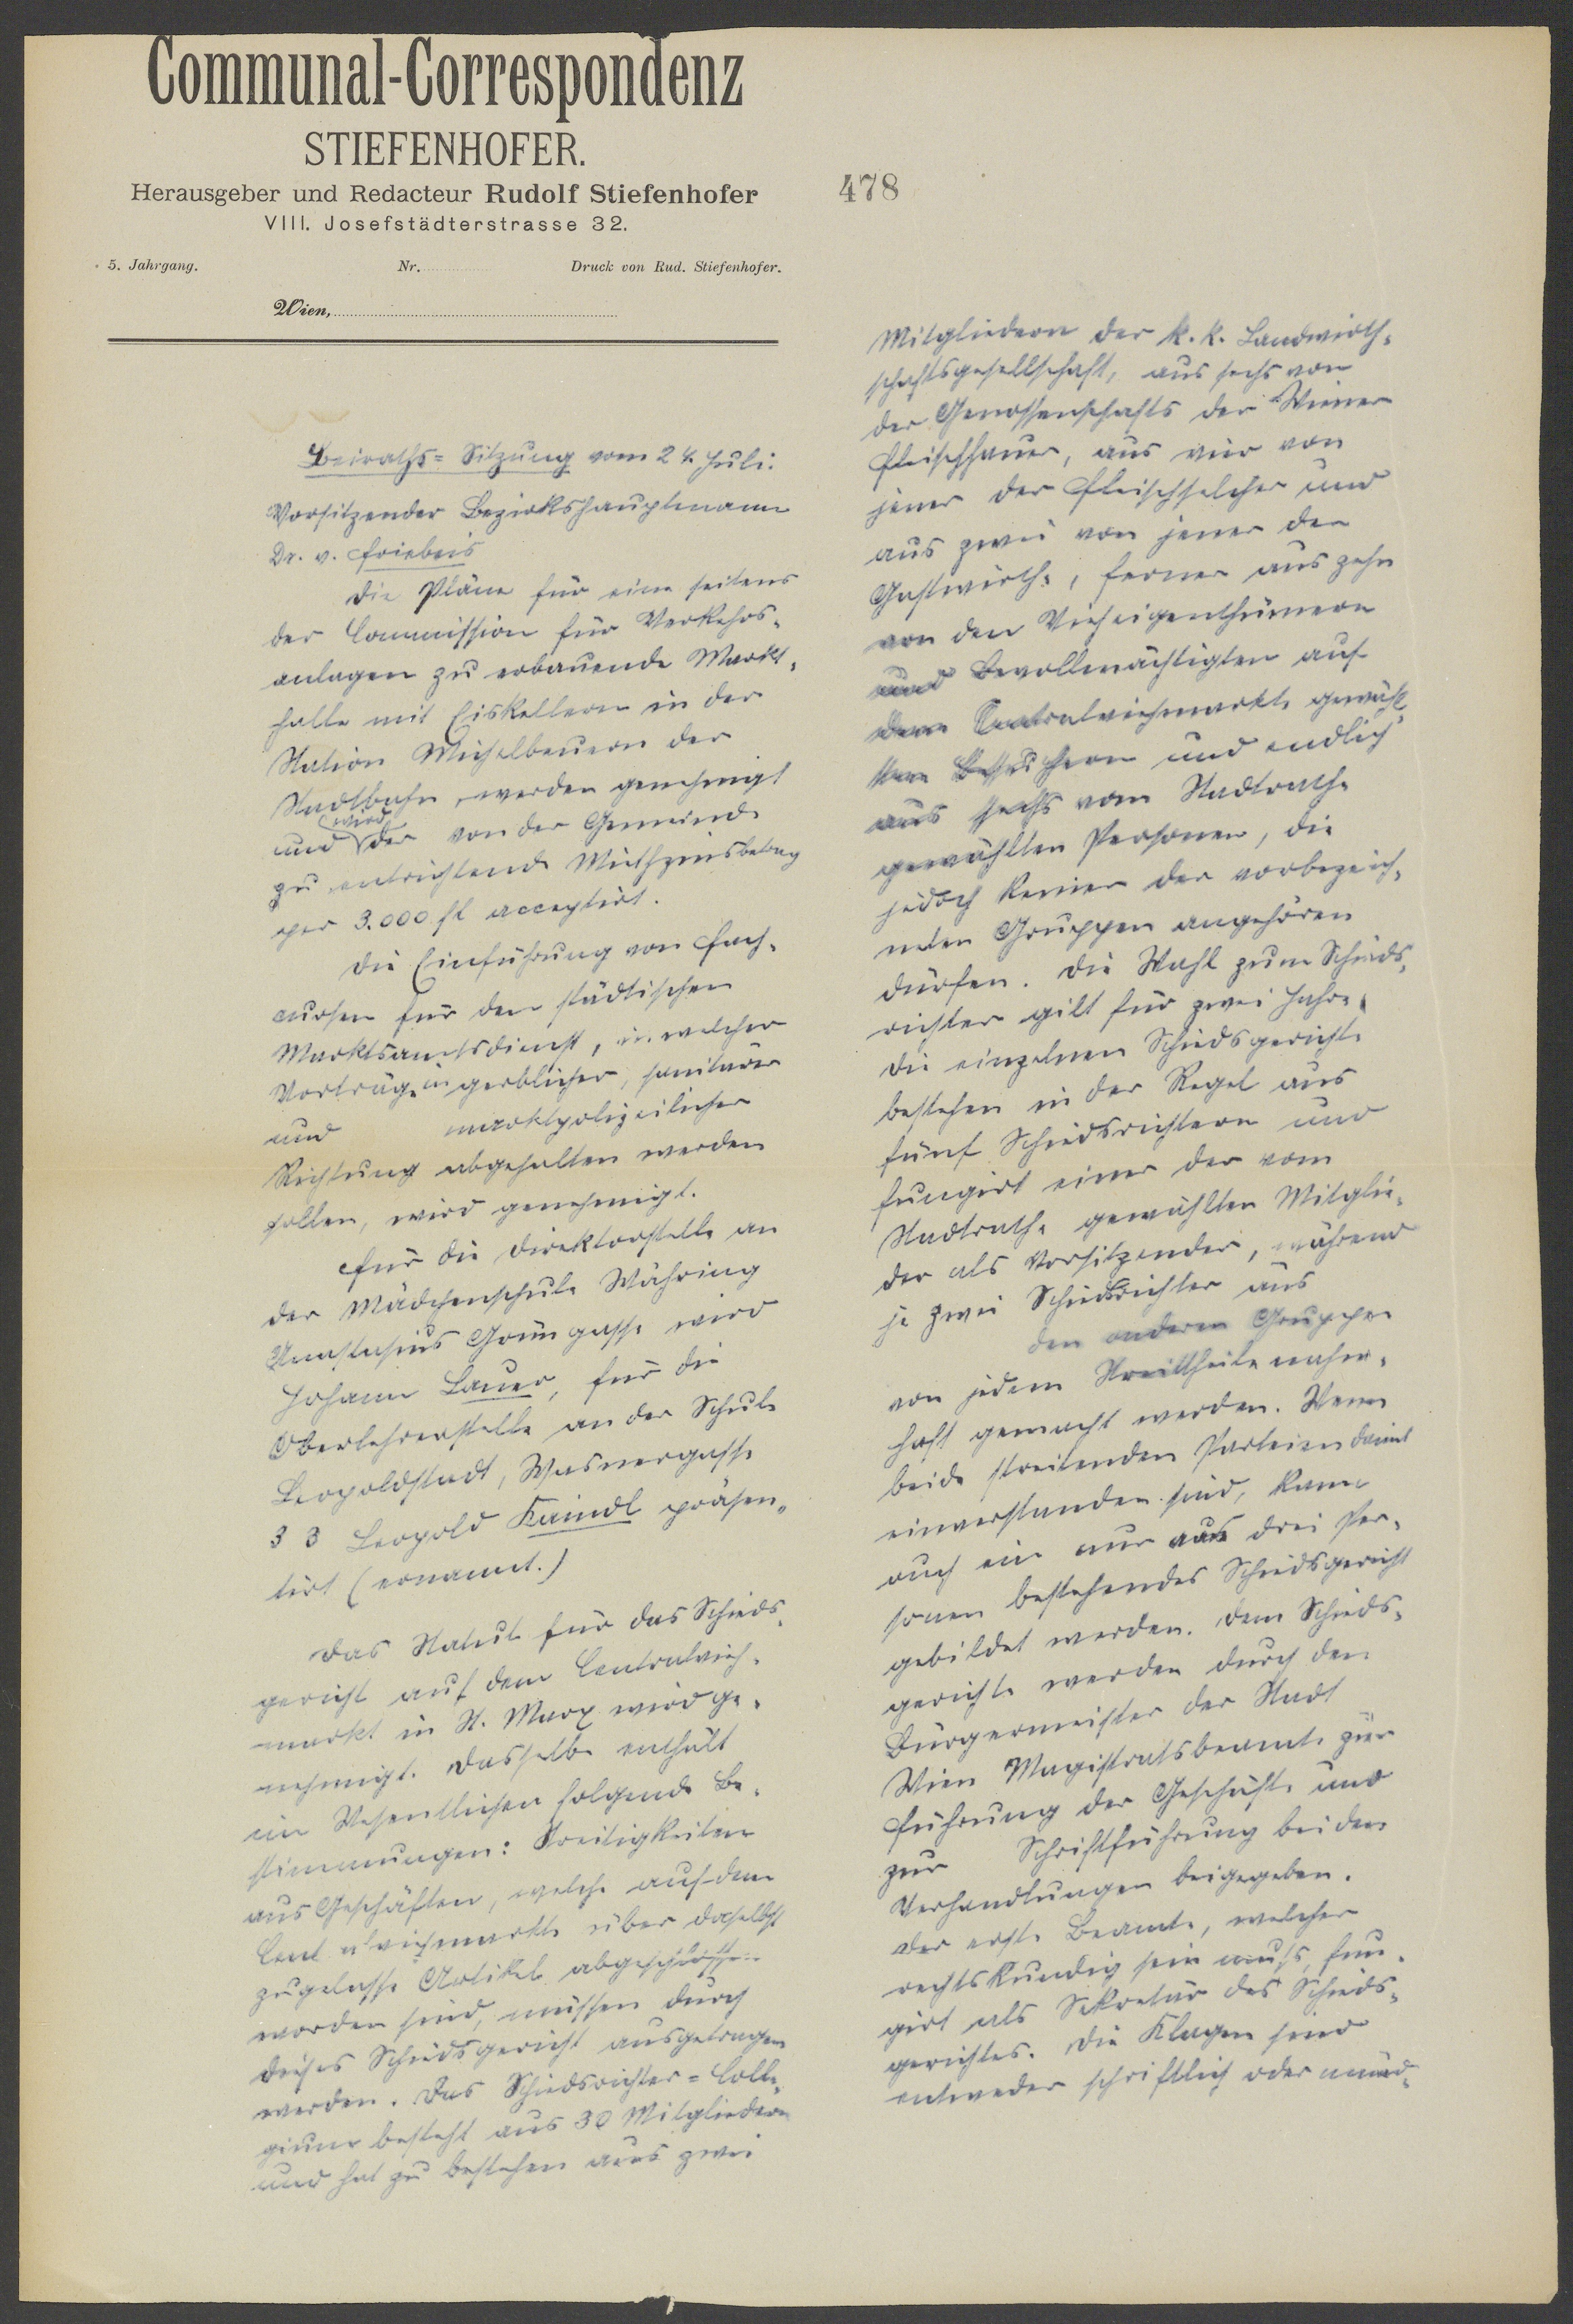 Communal-Correspondenz
STIEFENHOFER.
Herausgeber und Redacteur Rudolf Stiefenhofer
VIII. Josefstädterstrasse 32.
5. Jahrgang. Nr. Druck von Rud. Stiefenhofer.
Wien,
478
Beiraths-Sitzung vom 24. Juli.
Vorsitzender Bezirkshauptmann
Dr. v. Friebeis
Die Pläne für eine seitens
der Commission für Verkehrs-
anlagen zu erbauende Markt-
halle mit Eiskellern in der
Station Michelbeuern der
Stadtbahn, werden genehmigt
und wird der von der Gemeinde
zu entrichtende Miethzinsbetrag
per 3.000 fl acceptirt.
Die Einführung von Fach-
cursen für den städtischen
Marktamtsdienst, in welcher
Vorträge in gerblicher, sanitärer
und marktpolizeilicher
Richtung abgehalten werden
sollen, wird genehmigt.
Für die Direktorstelle an
der Mädchenschule Währing
Anastasius Grüngasse wird
Johann Lauer, für die
Oberlehrerstelle an der Schule
Leopoldstadt, Wasnergasse
33 Leopold Kaindl präsen-
tirt (ernannt.)
Das Statut für das Schieds-
gericht auf dem Centralvieh-
markt in St. Marx wird ge-
nehmigt. Dasselbe enthält
im Wesentlichen folgende Be-
stimmungen: Streitigkeiten
aus Geschäften, welche auf dem
Centralviehmarkte über daselbst
zugelasse Artikel abgeschlossen
worden sind, müssen durch
dieses Schiedsgericht ausgetragen
werden. Das Schiedsrichter-Colle-
gium besteht aus 30 Mitgliedern
und hat zu bestehen aus zwei
Mitgliedern der k. k. Landwirth-
schaftsgesellschaft, aus sechs von
der Genossenschafts der Wiener
Fleischhauer, aus vier von
jener der Fleischselcher und
aus zwei von jener der
Gastwirthe, ferner aus zehn
von den Vieheigenthümern
und Bevollmächtigten auf
dem Centralviehmarkte gewähl-
ten Besuchern und endlich
aus sechs vom Stadtrathe
gewählten Personen, die
jedoch keiner der vorbezeich-
neten Gruppen angehören
dürfen. Die Wahl zum Schieds-
richter gilt für zwei Jahre.
Die einzelnen Schiedsgerichte
bestehen in der Regel aus
fünf Schiedsrichtern und
fungirt einer der vom
Stadtrathe gewählten Mitglie-
der als Vorsitzender, während
je zwei Schiedsrichter aus
den anderen Gruppen
von jedem Streittheile namen-
haft gemacht werden. Wenn
beide streitenden Parteien damit
einverstanden sind, kann
auch ein nur aus drei Per-
sonen bestehendes Schiedsgericht
gebildet werden. Dem Schieds-
gerichte werden durch den
Bürgermeister der Stadt
Wien Magistratsbeamte zur
Führung der Geschäfte und
zur Schriftführung bei den
Verhandlungen beigegeben.
Der erste Beamte, welcher
rechtskundig sein muß, fun-
girt als Sekretär des Schieds-
gerichtes. Die Klagen sind
entweder schriftlich oder münd-